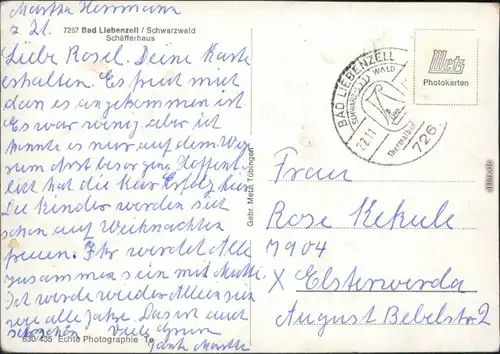 Martha Herrmann
z. Zt.
7267 Bad Liebenzell / Schwarzwald
Schäfferhaus
Liebe Rosel. Deine Karte
erhalten. Es freut mich
dan es angekommen ist.
Es war wenig aber ich
konnte es nur auf dem Weg
zum Arzt besorgen. Hoffentl.
hat die Kur Erfolg hier
Die Kinder werden sich
schon auf Weihnachten
freuen. Ihr werdet Alle
zusammen sein mit Mutti
Ich werde wieder Allein sein
wie alle Jahre. Das ist auch
schön Viele Grüsse
Tante Martha
630/435 Echte Photographie
Gebr. Metz, Tübingen
BAD LIEBENZELL
SCHWARZWALD
Thermalbad
22.11
726
Metz
Photokarten
Frau
Rose Kekule
7904
X Elsterwerda
August Bebelstr 2